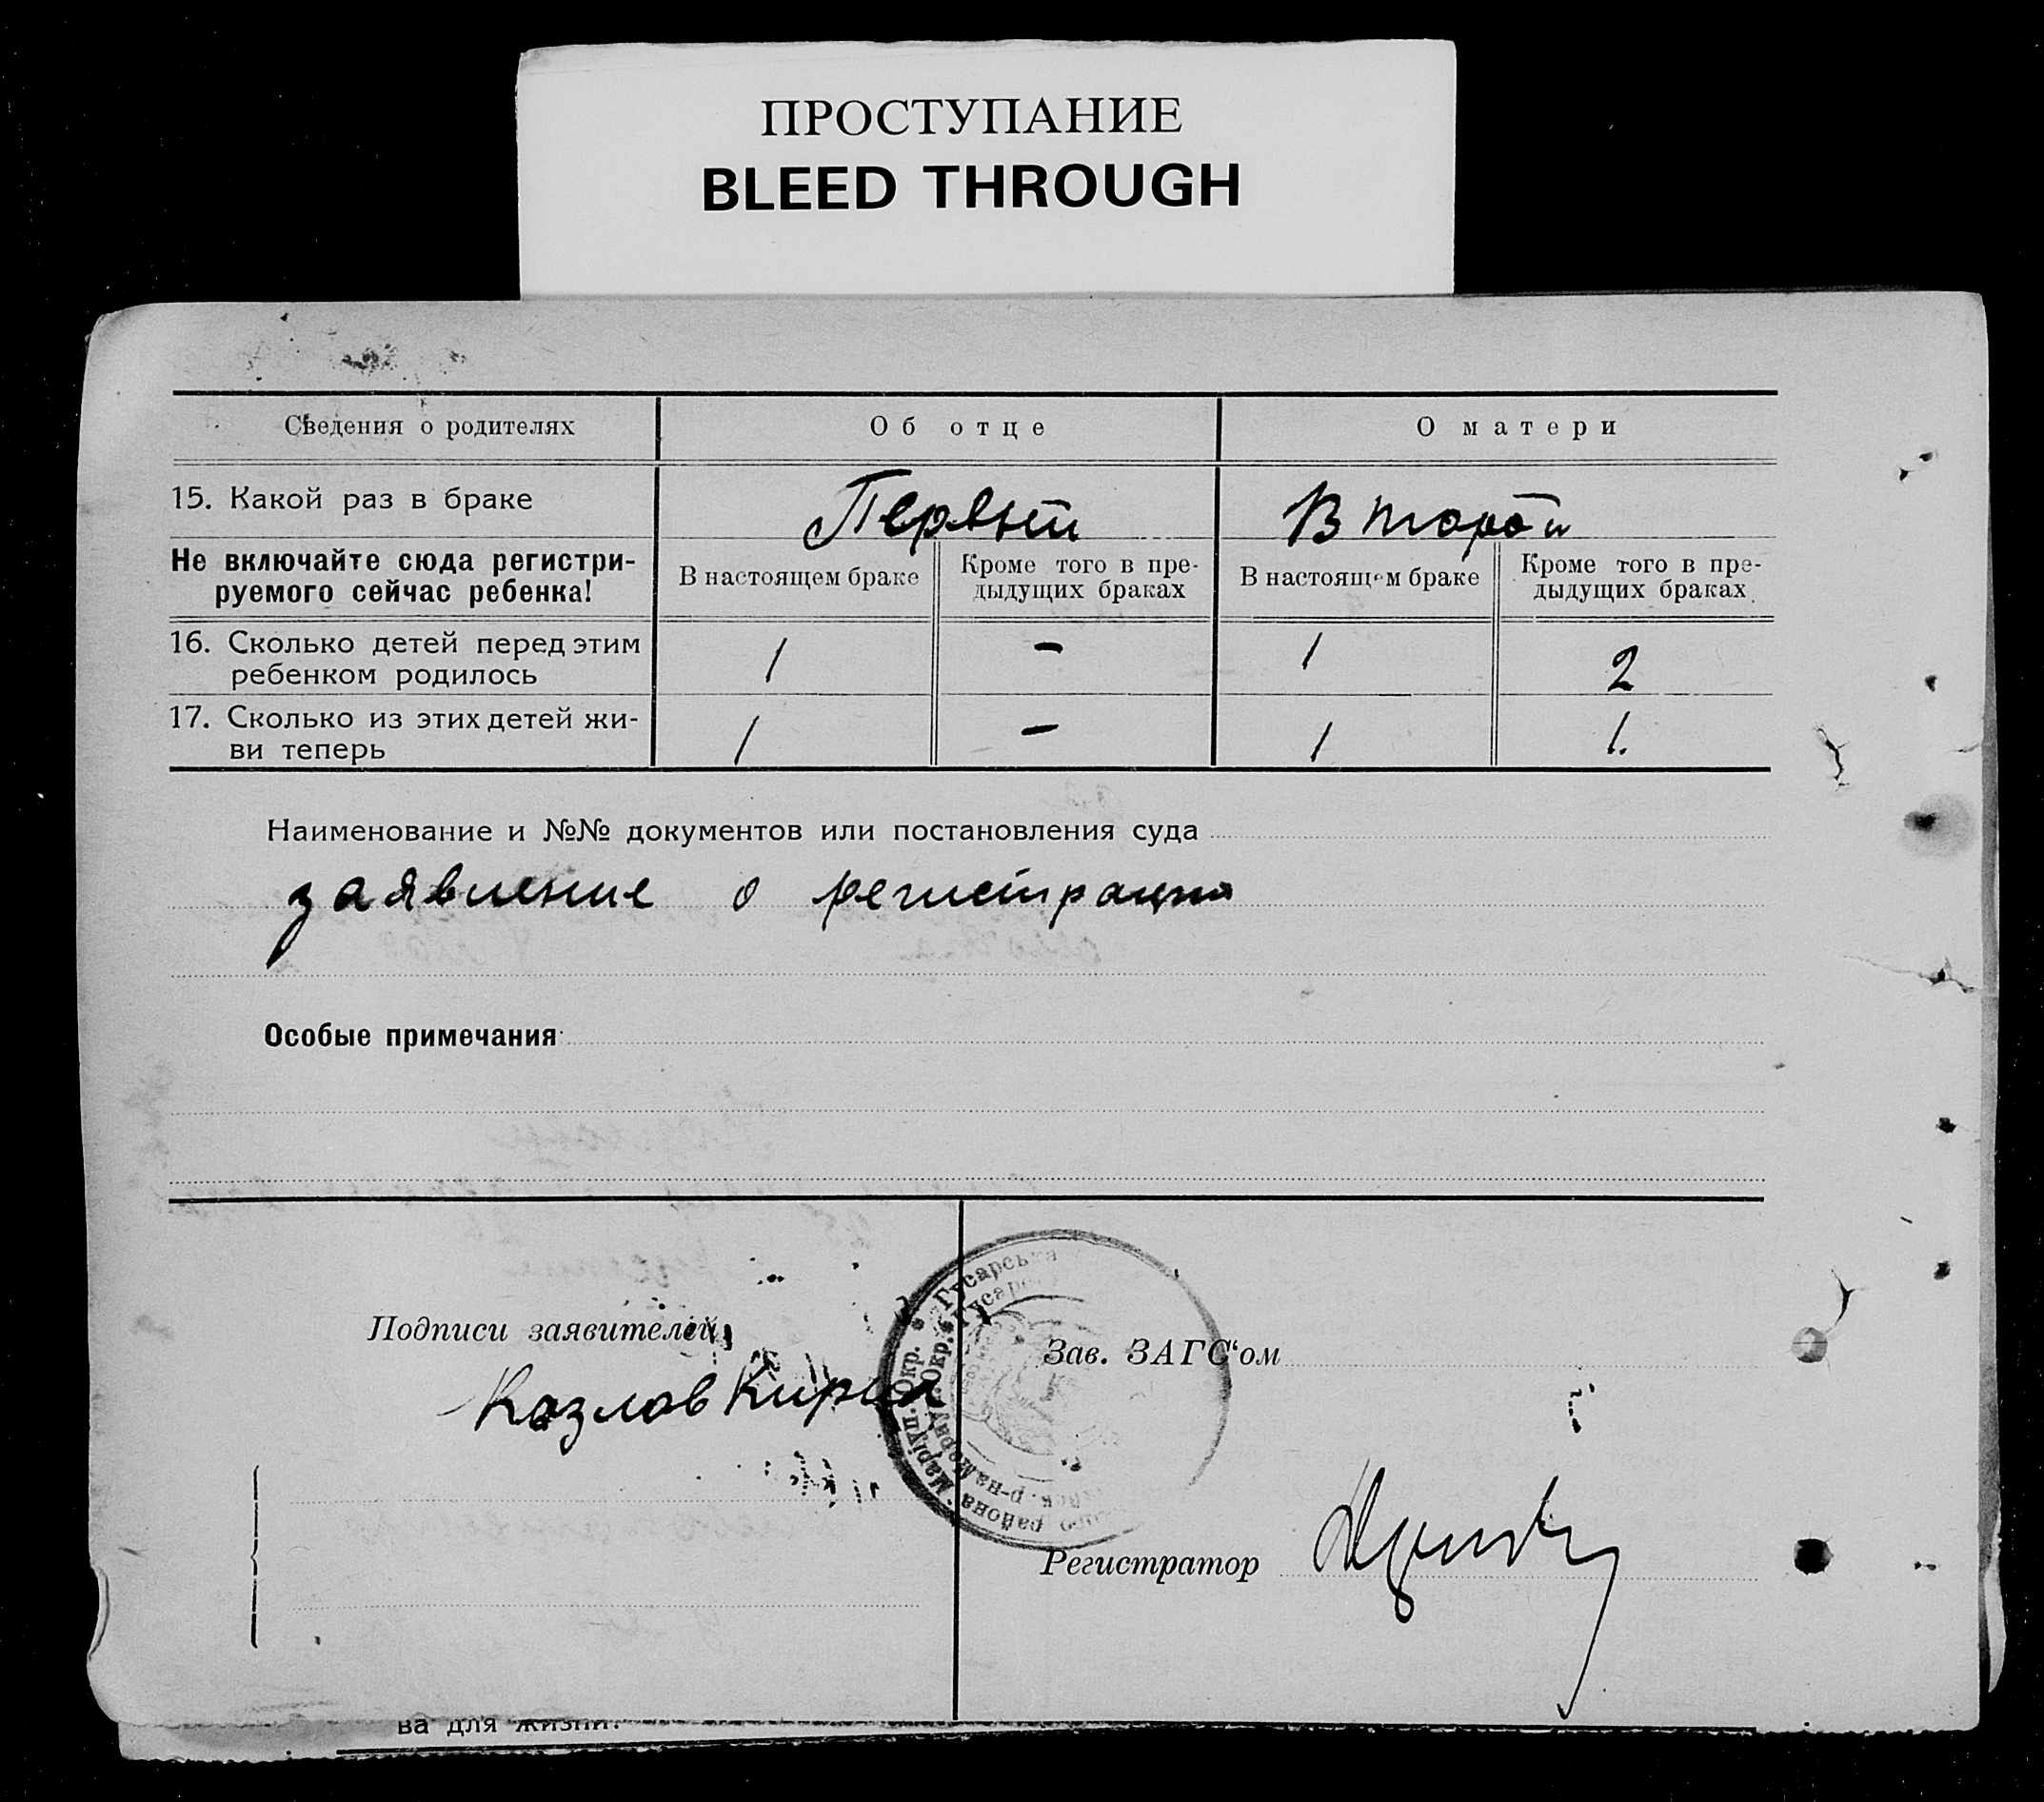 ПРОСТУПАНИЕ
BLEED THROUGH
Сведения о родителях
Об отце
О матери
15. Какой раз в браке
Первый
Второй
Не включайте сюда регистри-
руемого сейчас ребенка!
В настоящем браке
Кроме того в пре-
дыдущих браках
В настоящем браке
Кроме того в пре-
дыдущих браках
16. Сколько детей перед этим
ребенком родилось
1
-
1
2
17. Сколько из этих детей жи-
ви теперь
1
-
1
1.
Наименование и №№ документов или постановления суда
заявление о регистрации
Особые примечания
Подписи заявителей
Козлов
Гусарська
Маріуп. Окр.
района
р-на
Зав. ЗАГС‘ом
Регистратор
ва для жизни.